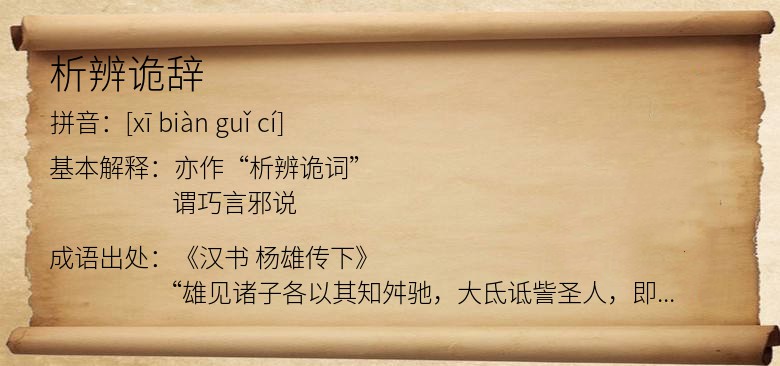 析辨诡辞
拼音：[xī biàn guǐ cí]
基本解释：亦作“析辨诡词”
谓巧言邪说
成语出处：《汉书 杨雄传下》
“雄见诸子各以其知舛驰，大氐诋訾圣人，即...